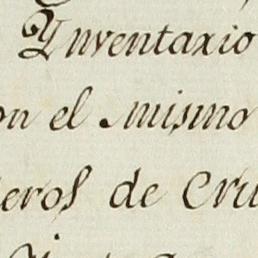 Ynventario
on el mismo
eros de Cru